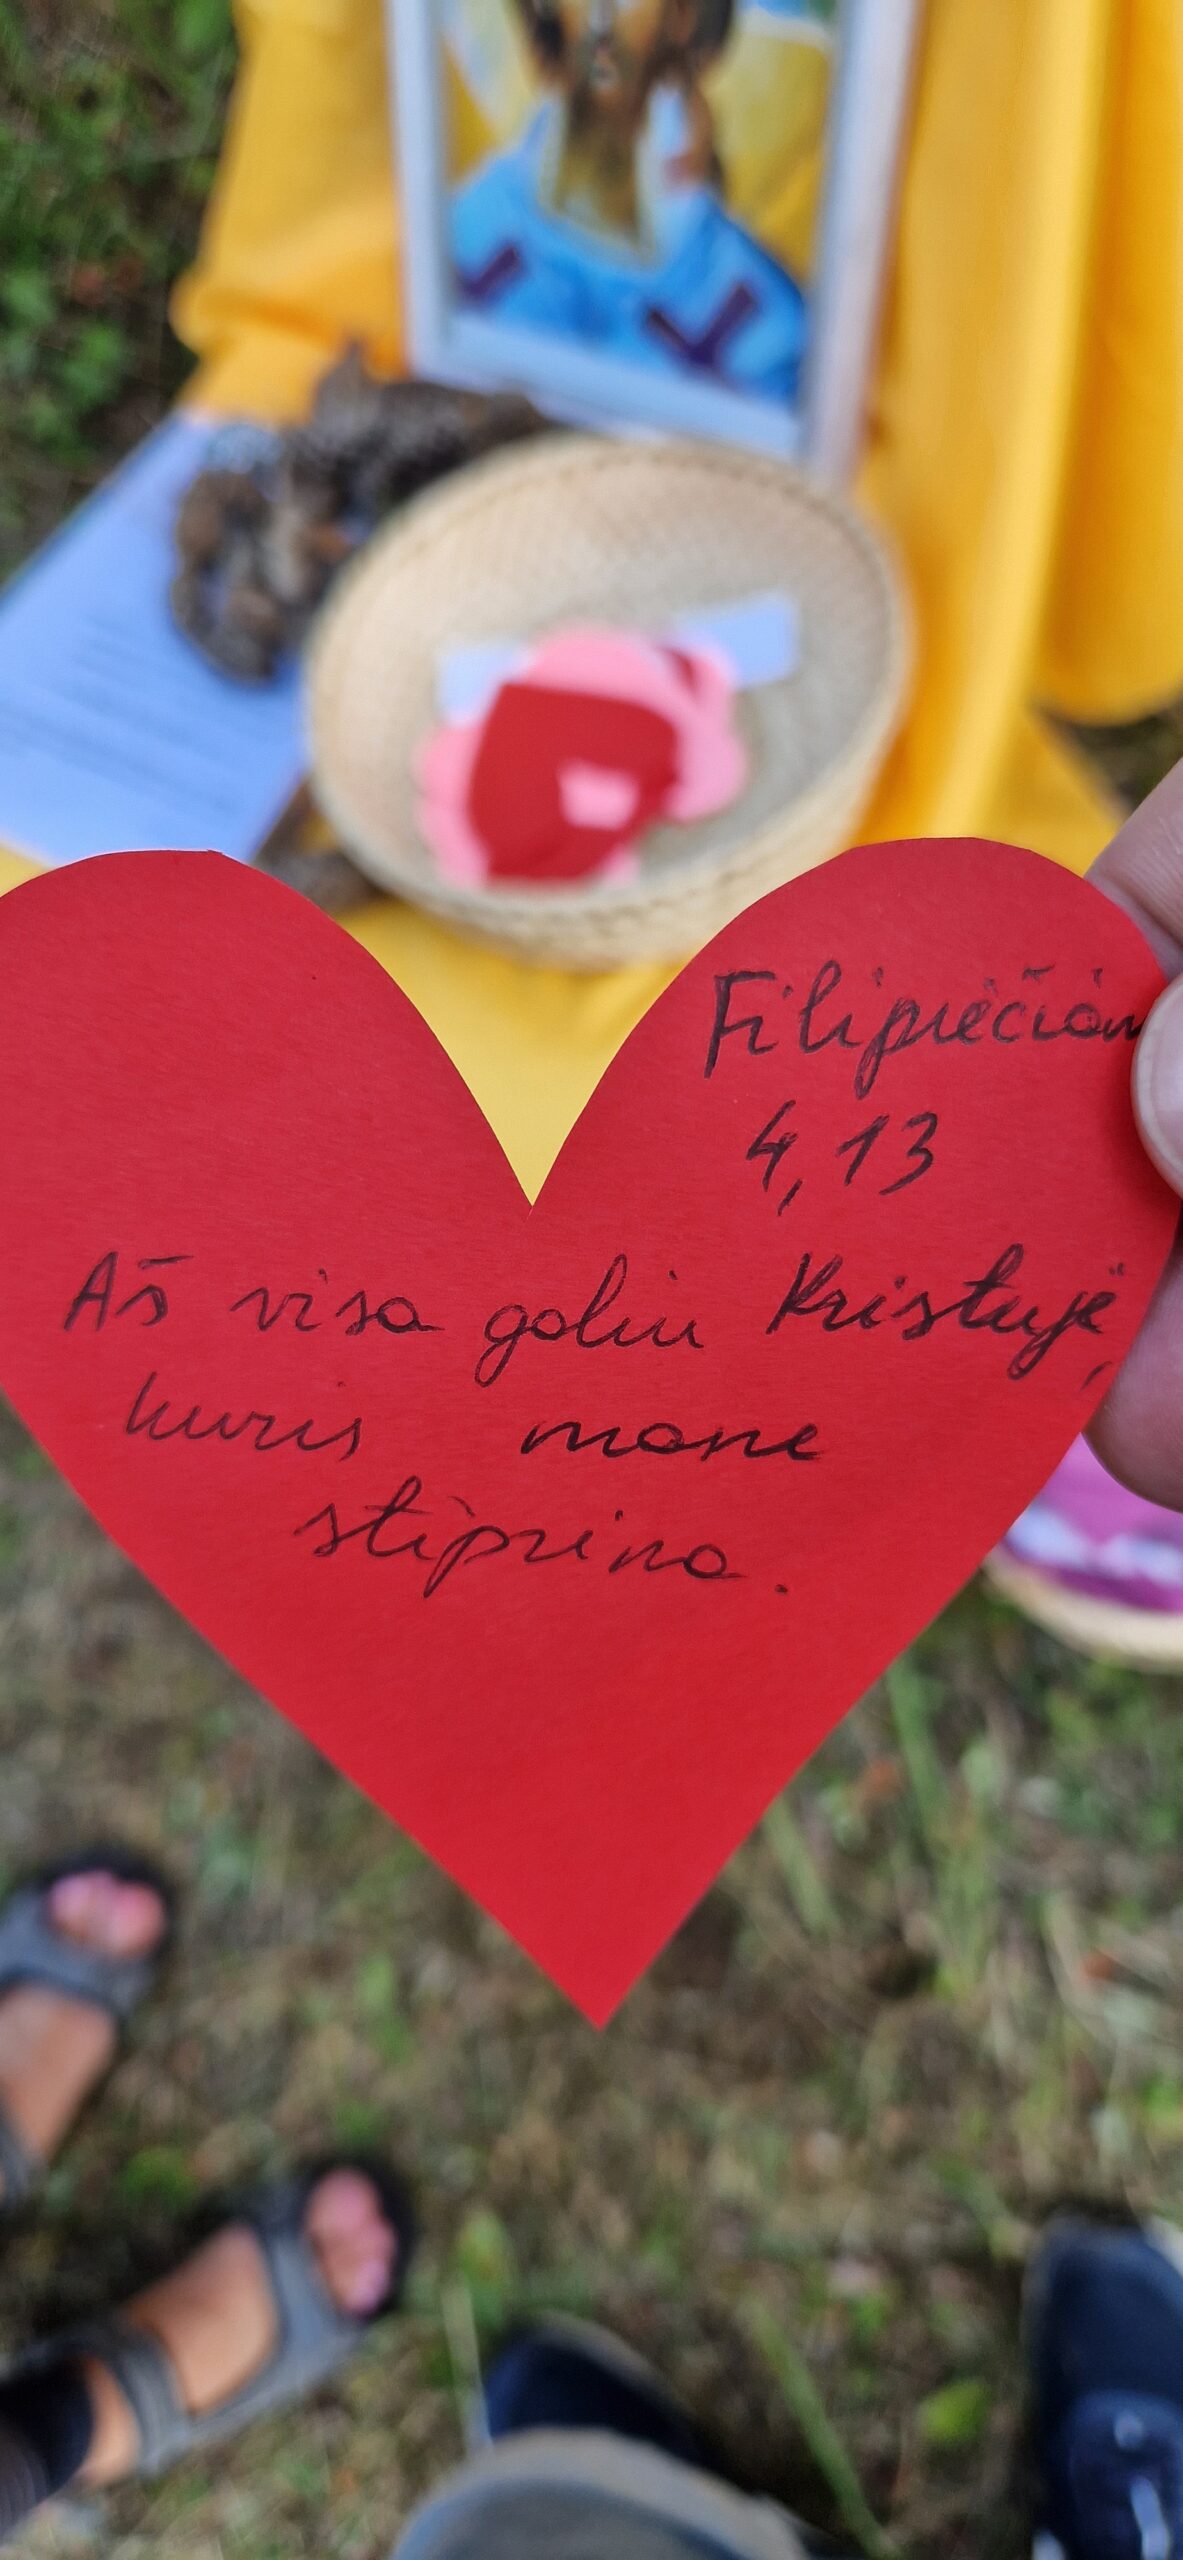 Filipiečiam
4,13
Aš visa galiu Kristuje,
kuris mane
stiprina.